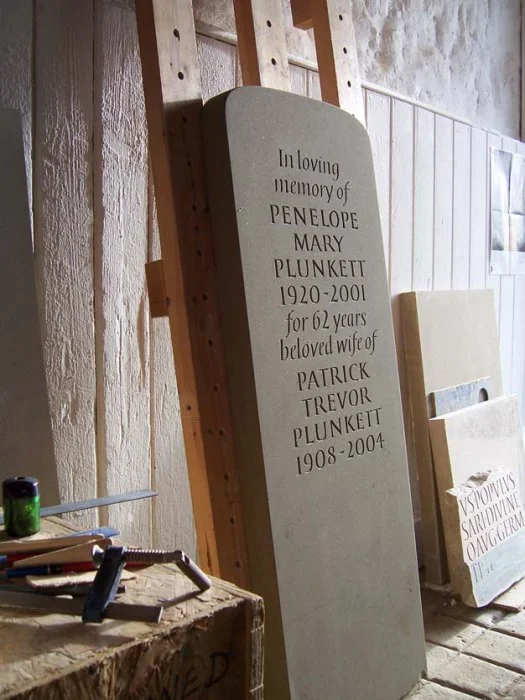 In loving
memory of
PENELOPE
MARY
PLUNKETT
1920-2001
for 62 years
beloved wife of
PATRICK
TREVOR
PLUNKETT
1908-2004
VSPOPVLVS
SARIDIVINE
OAVGGERM